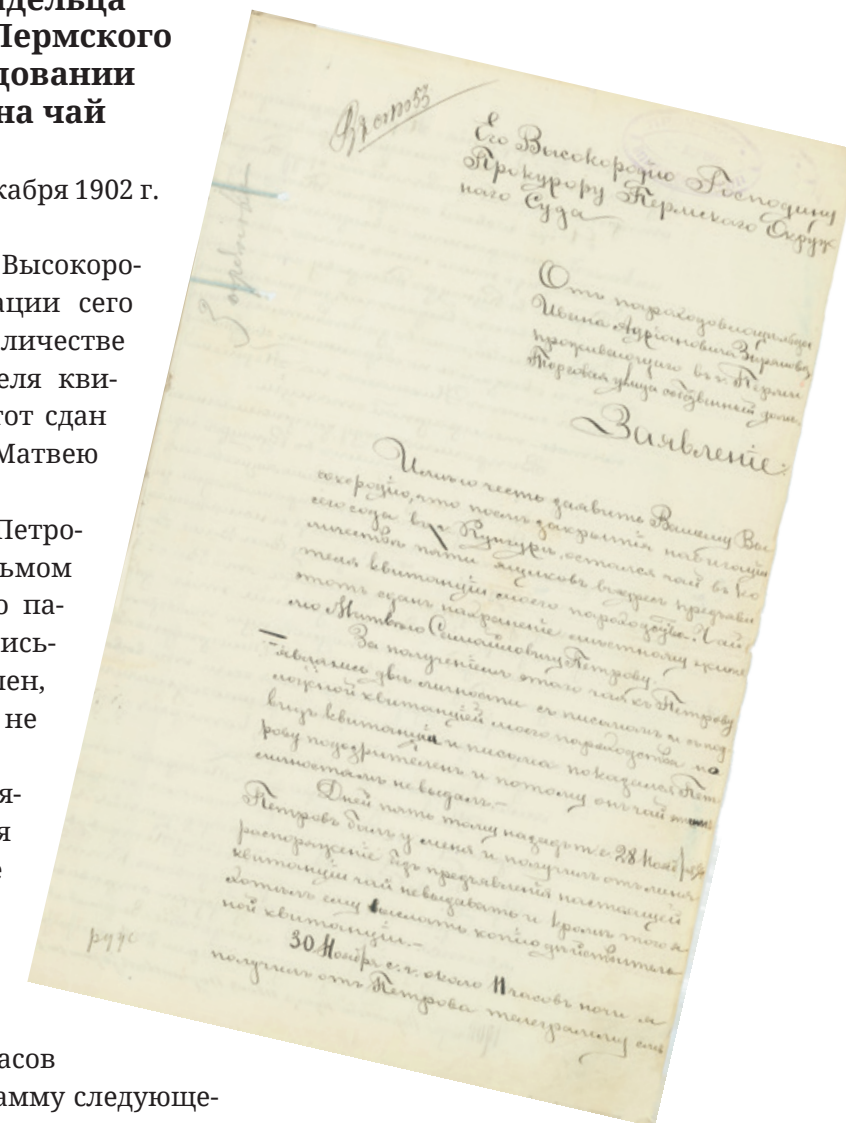 дельца
Пермского
довании
на чай
кабря 1902 г.
Высокоро-
ации сего
личестве
еля кви-
тот сдан
Матвею
Петро-
ьмом
о па-
ись-
лен,
не
я-
я
е
асов
амму следующе-
Его Высокородию Господину
Прокурору Пермскаго Окруж
наго Суда
Отъ пароходовладельца
Ивана Адриановича Зырянова,
проживающаго въ г. Перми
Торговая улица собственный домъ.
Заявленіе:
Имѣю честь заявить Вашему Вы
сокородію, что послѣ закрытія навигаціи
сего года въ г. Кунгурѣ, остался чай въ ко
личествѣ пяти ящиковъ впредь предъяви
теля квитанціи моего пароходства. Чай
этотъ сданъ на храненіе мѣстному жите
лю Матвею Самойловичу Петрову.
За полученіемъ этого чая къ Петрову
являлись двѣ личности съ письмомъ и съ под
ложной квитанціей моего пароходства но
видъ квитанціи и письма показался Пет
рову подозрителенъ и потому онъ чай
личностямъ не выдалъ.—
Дней пять тому назадъ т.е. 28 Ноября
Петровъ былъ у меня и получилъ отъ меня
распоряженіе безъ предъявленія настоящей
квитанціи чай невыдавать и кромѣ того я
хотѣлъ ему выслать копію дѣйствитель
ной квитанціи.—
30 Ноября с.г. около 11 часовъ ночи я
получилъ отъ Петрова телеграмму слѣ